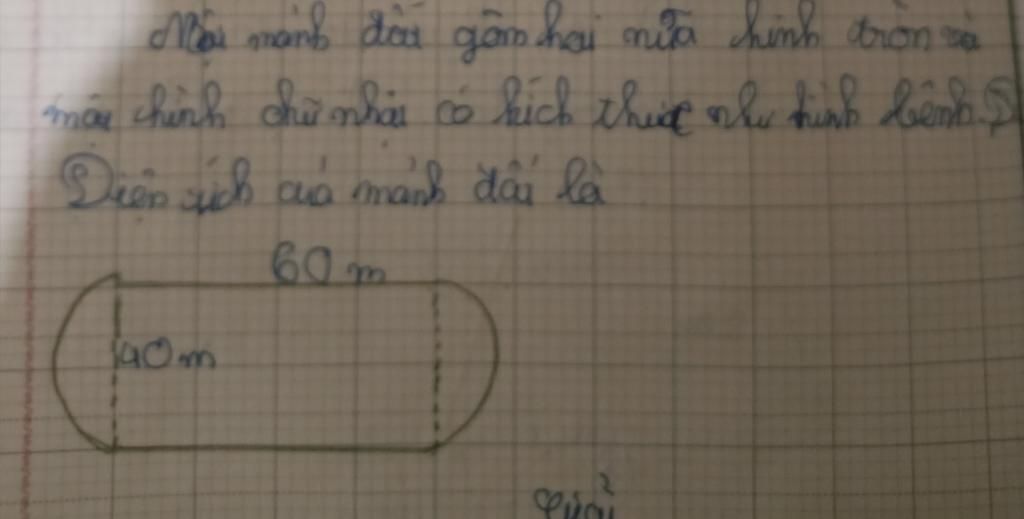 Một mảnh đất gồm hai nửa hình tròn và
một hình chữ nhật có kích thước như hình bên.
Diện tích của mảnh đất là
60 m
40m